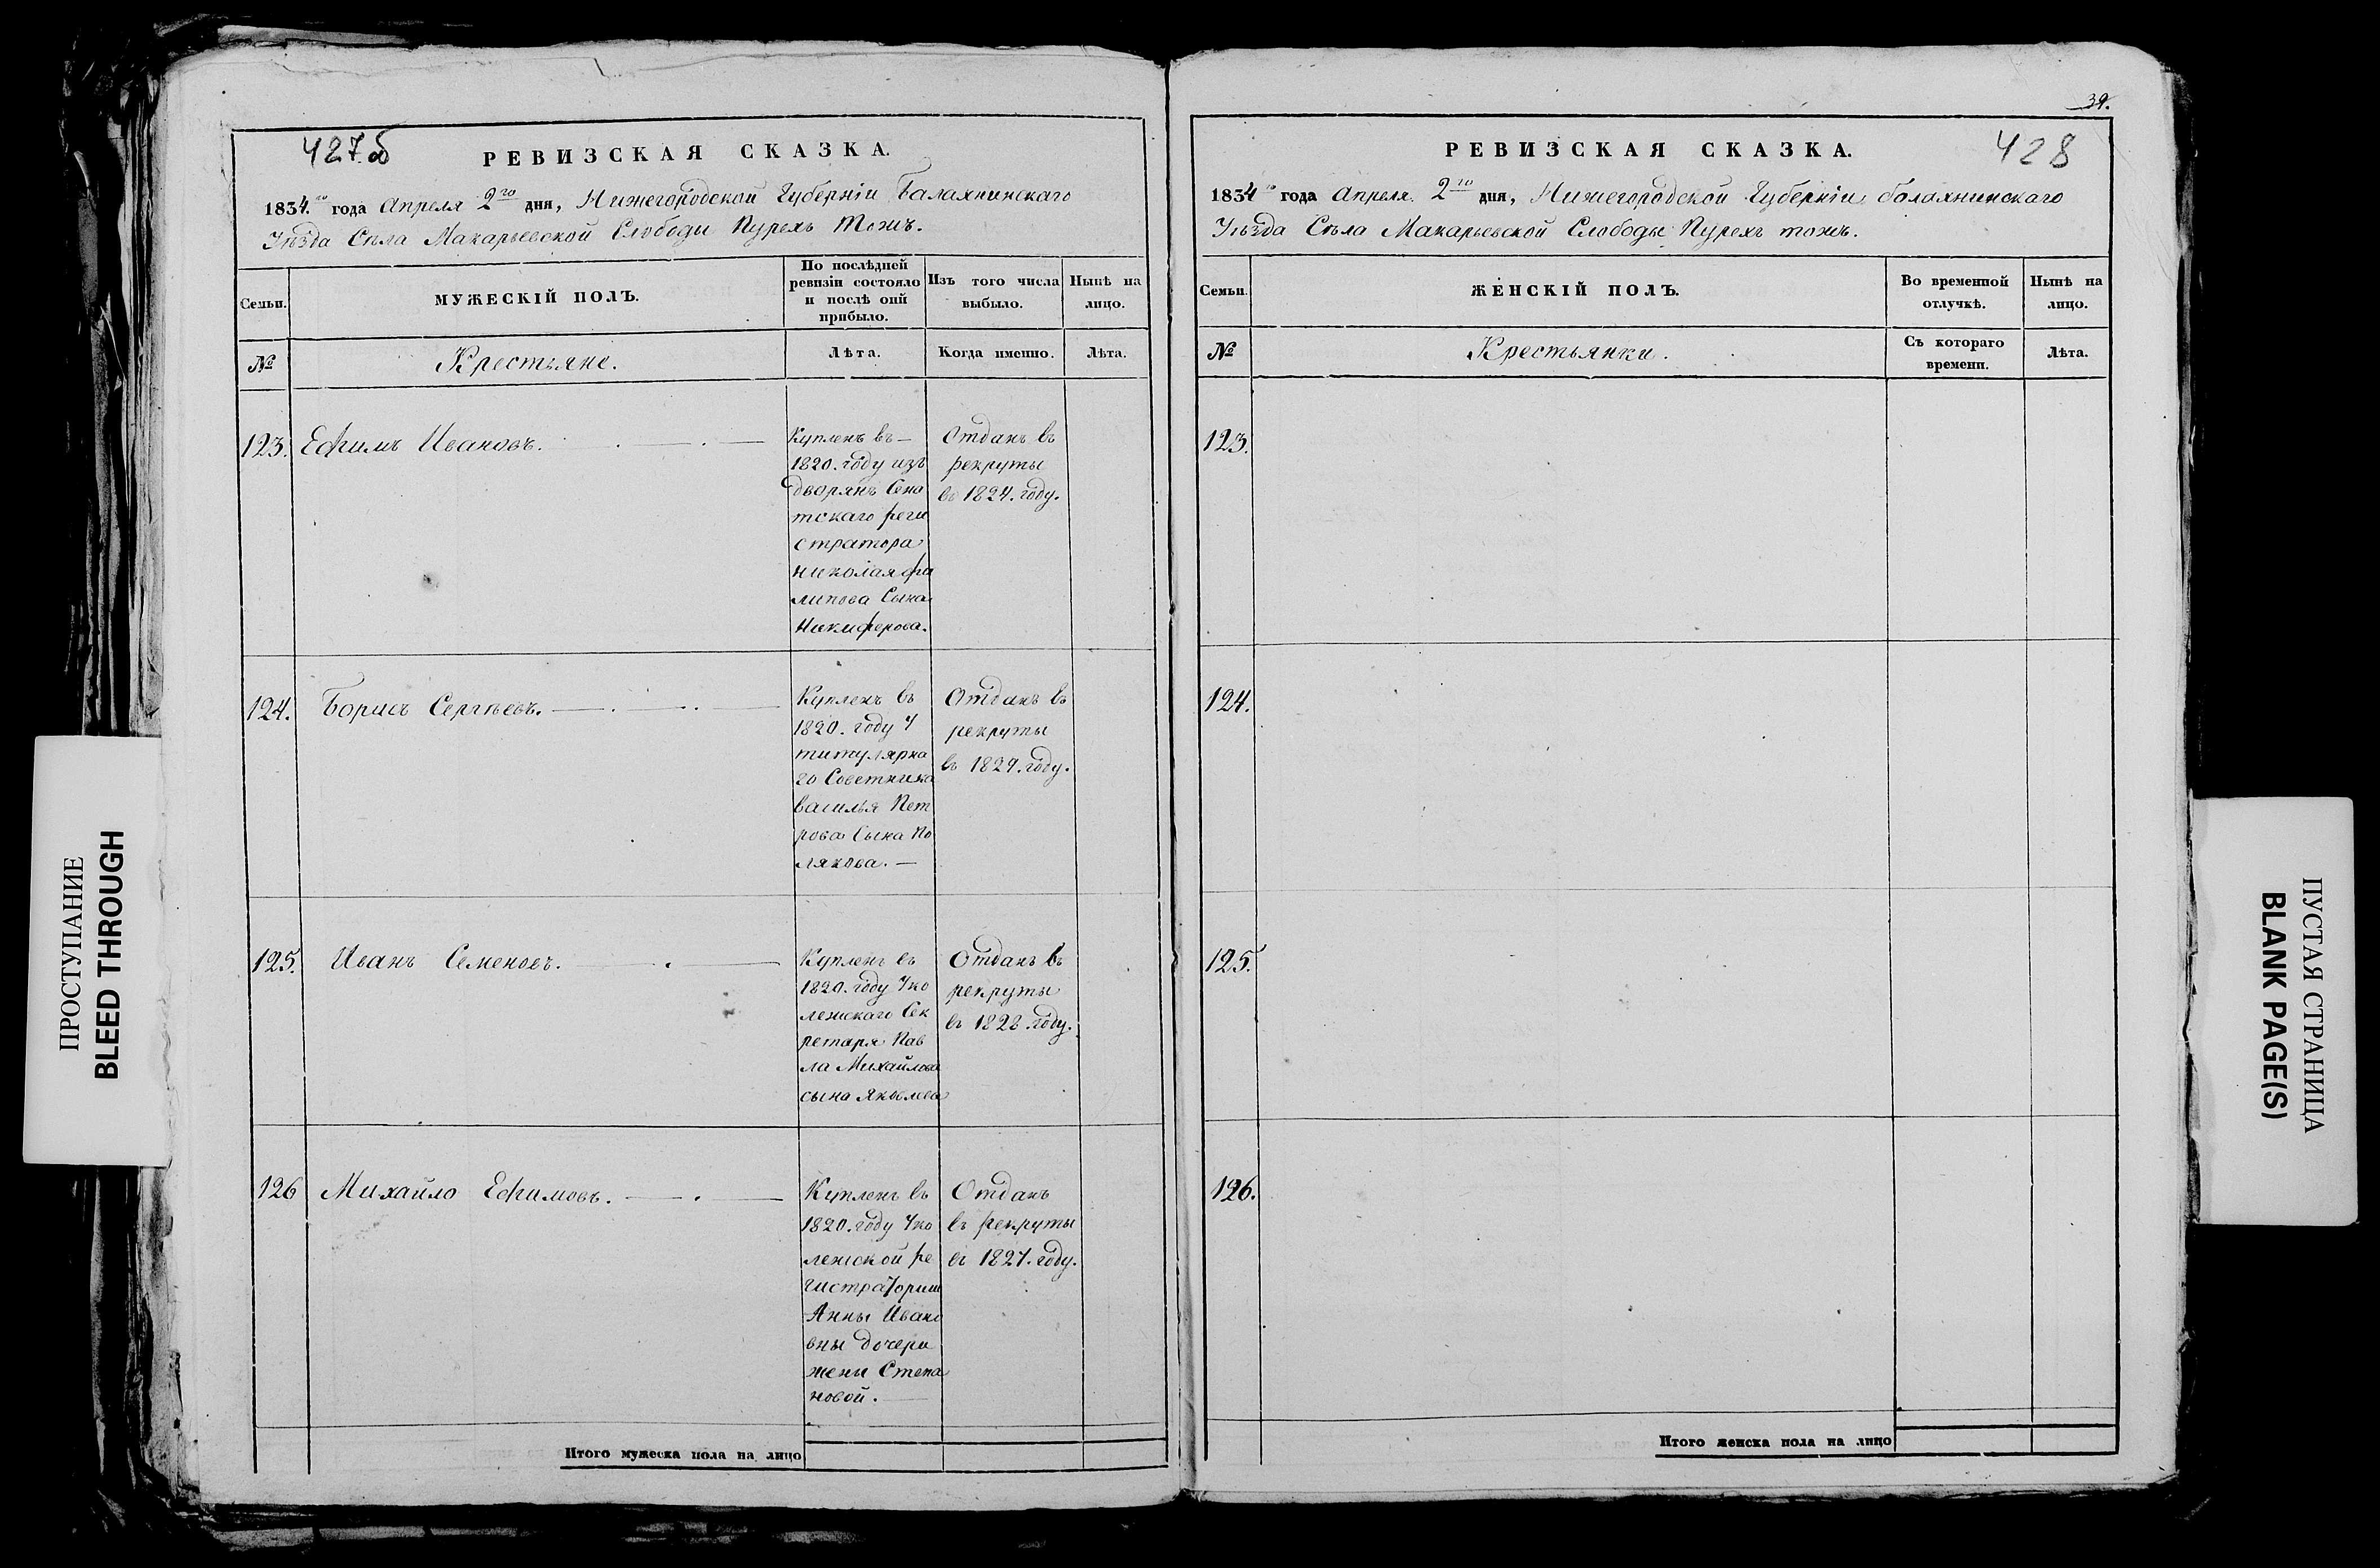 427об
РЕВИЗСКАЯ СКАЗКА.
1834.го года Апреля 2го дня, Нижегородской Губерніи Балахнинскаго
Уѣзда Села Макарьевской Слободы Пурехъ Тожъ.
Семьи.
МУЖЕСКІЙ ПОЛЪ.
По послѣдней
ревизіи состояло
и послѣ оній
прибыло.
Изъ того числа
выбыло.
Нынѣ на
лицо.
№
Крестьяне.
Лѣта.
Когда именно.
Лѣта.
123. Ефимъ Ивановъ.
Купленъ въ
1820. году изъ
дворянъ Сена
тскаго реги
стратора
Николая Фи
липова Сына
Никиферова.
Отданъ въ
рекруты
въ 1824. году.
124. Борисъ Сергѣевъ.
Купленъ въ
1820. году У
титулярна
го Советника
василья Пет
рова Сына По
лякова.
Отданъ въ
рекруты
въ 1829. году.
125. Иванъ Семеновъ.
Купленъ въ
1820. году Уко
лежскаго Сек
ретаря Пав
ла Михайлова
сына Яковлева
Отданъ въ
рекруты
въ 1828. году.
126 Михайло Ефимовъ.
Купленъ въ
1820. году Уко
лежской ре
гистраторши
Анны Ивано
вны дочери
жены Степа
новой.
Отданъ
въ рекруты
въ 1827. году.
Итого мужеска пола на лицо
39.
428
РЕВИЗСКАЯ СКАЗКА.
1834го года Апреля. 2го дня, Нижегородской Губерніи балахнинскаго
Уѣзда Села Макарьевской Слободы Пурехъ тожъ.
Семьи.
ЖЕНСКІЙ ПОЛЪ.
Во временной
отлучкѣ.
Нынѣ на
лицо.
№
Крестьянки.
Съ котораго
времени.
Лѣта.
123.
124.
125.
126.
Итого женска пола на лицо
ПРОСТУПАНИЕ
BLEED THROUGH
ПУСТАЯ СТРАНИЦА
BLANK PAGE(S)